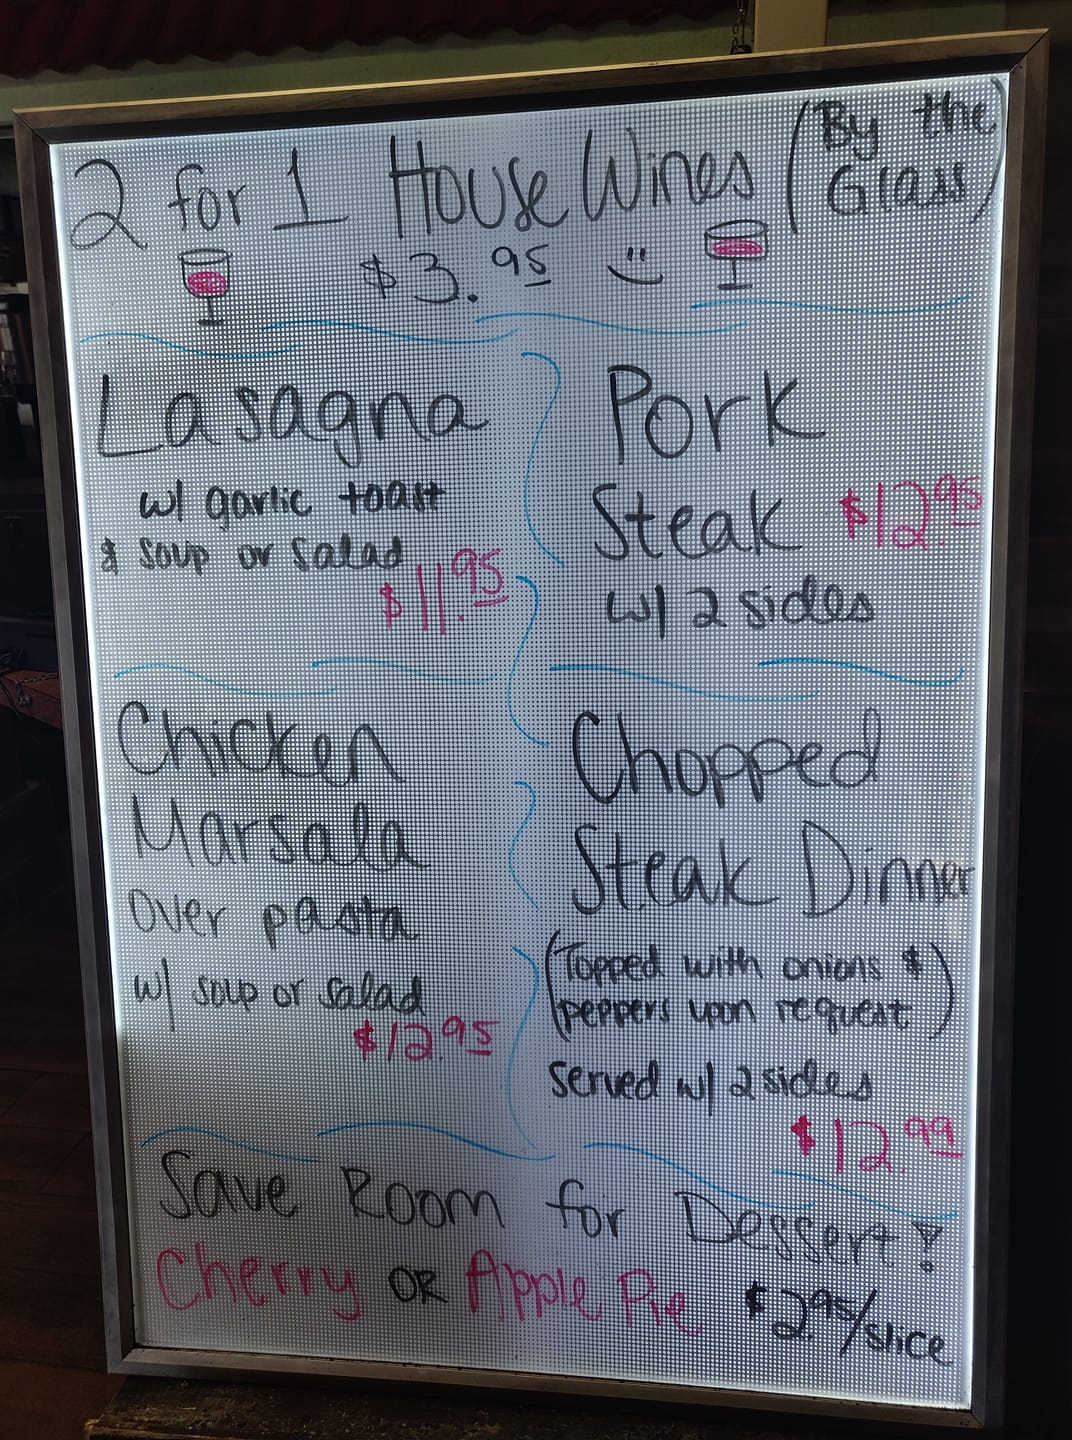 2 for 1 House Wines (By the Glass)
$3.95
Lasagna
w/ garlic toast
& soup or salad
$11.95
Pork
Steak $12.95
w/ 2 sides
Chicken
Marsala
Over pasta
w/ soup or salad
$12.95
Chopped
Steak Dinner
(Topped with onions &
peppers upon request)
Served w/ 2 sides
$12.99
Save Room for Dessert!
Cherry OR Apple Pie $2.95/slice